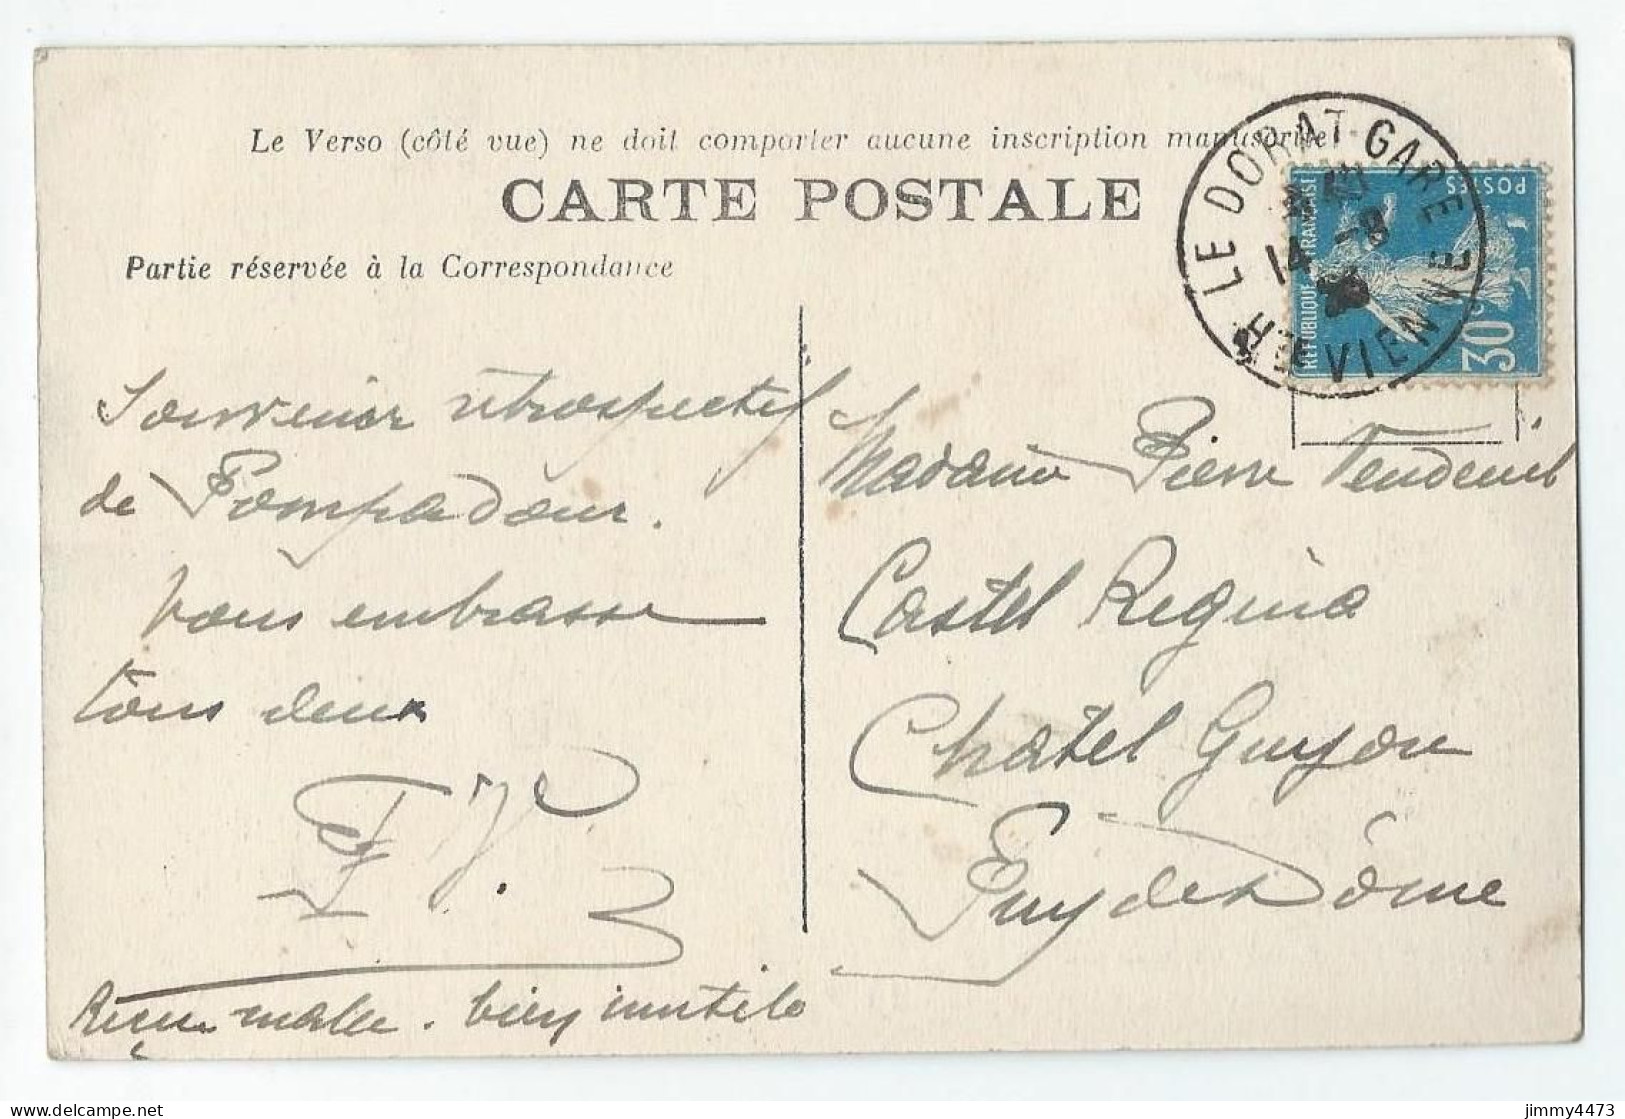 Le Verso (côté vue) ne doit comporter aucune inscription manuscrite
CARTE POSTALE
Partie réservée à la Correspondance
LE DORAT-GARE
14 -8
HTE VIENNE
REPUBLIQUE FRANCAISE
POSTES
30c
Souvenir rétrospectif
de Pompadour.
Vous embrasse
tous deux
Reçu malle. bien inutile
Madame Pierre Vendeuil
Castel Regina
Chatel Guyon
Puy de Dôme
delcampe.net
jimmy4473